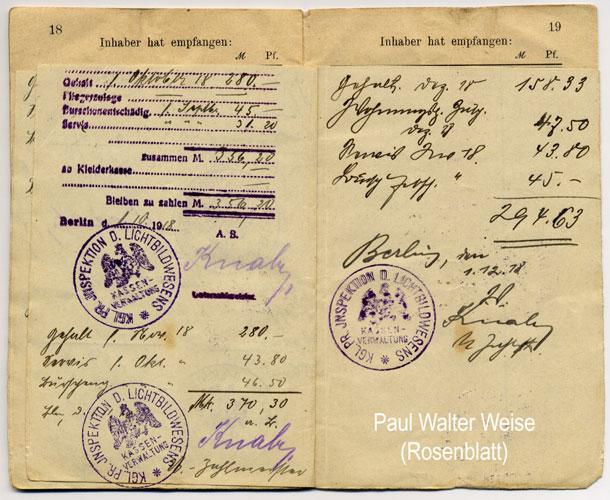 18
Inhaber hat empfangen:
M Pf.
Gehalt f. Oktober 18 280.-
Fliegerzulage
Burschenentschädig. f. Septb. 45.-
Servis 31.20
zusammen M. 356,20
ab Kleiderkasse
Bleiben zu zahlen M. 356.20
Berlin d. 1918
A. B.
Knab
KGL. PR. JNSPEKTION D. LICHTBILDWESENS
KASSEN-
VERWALTUNG
Gehalt f. Nov. 18 280.-
Servis f. Okt. " 43.80
" 46.50
Mk. 370,30
Knab
Zahlmeister
KGL. PR. JNSPEKTION D. LICHTBILDWESENS
KASSEN-
VERWALTUNG
19
Inhaber hat empfangen:
M Pf.
Gehalt Dez 18 158.33
47.50
Dez 18
Servis Nov 18. 43.80
" 45.-
294.63
Berlin, den
1.12.18
Knab
KGL. PR. JNSPEKTION D. LICHTBILDWESENS
KASSEN-
VERWALTUNG
Paul Walter Weise
(Rosenblatt)